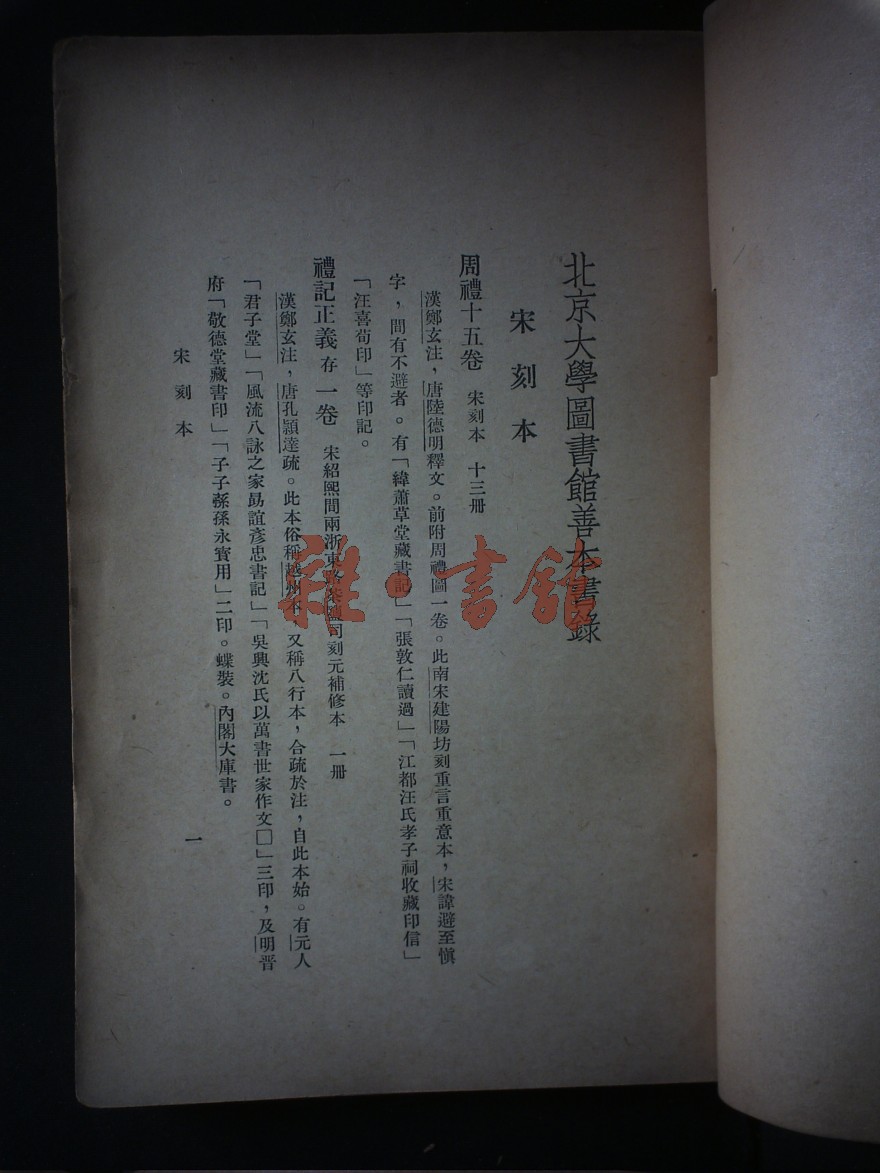 北京大學圖書館善本書錄
宋刻本
周禮十五卷 宋刻本 十三册
漢鄭玄注，唐陸德明釋文。前附周禮圖一卷。此南宋建陽坊刻重言重意本，宋諱避至愼
字，間有不避者。有「緯蕭草堂藏書記」「張敦仁讀過」「江都汪氏孝子祠收藏印信」
「汪喜荀印」等印記。
禮記正義 存一卷 宋紹熙間兩浙東 司刻元補修本 一册
漢鄭玄注，唐孔穎達疏。此本俗稱越州本，又稱八行本，合疏於注，自此本始。有元人
「君子堂」「風流八詠之家勗誼彥忠書記」「吳興沈氏以萬書世家作文□」三印，及明晋
府「敬德堂藏書印」「子子孫孫永寶用」二印。蝶裝。內閣大庫書。
宋刻本
一
雜·書館